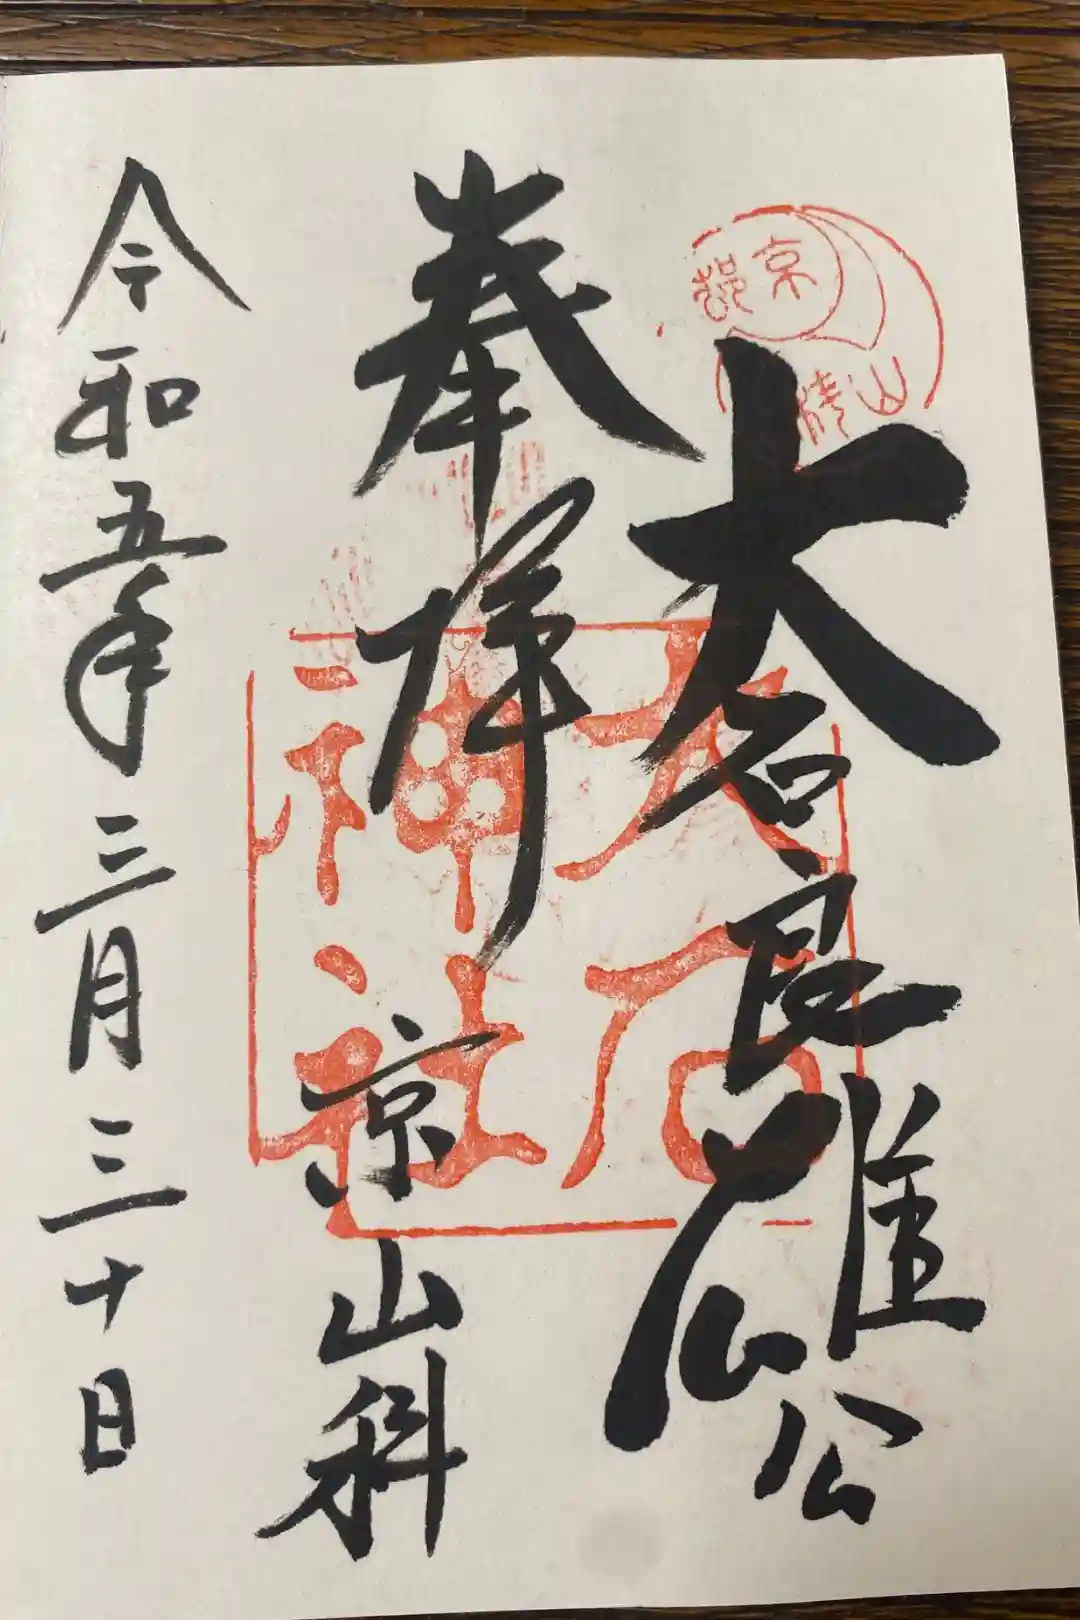 大石良雄公
奉拝
京山科
令和五年三月三十日
大石
神社